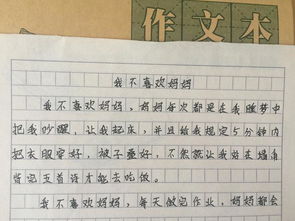 作文本
我不喜欢妈妈
我不喜欢妈妈，妈妈每次都是在我睡梦中
把我吵醒，让我起床，并且给我规定5分钟内
把衣服穿好，被子叠好，不然就让我站在墙角
背完五首诗才能去吃饭。
我不喜欢妈妈，每天做完作业，妈妈都会